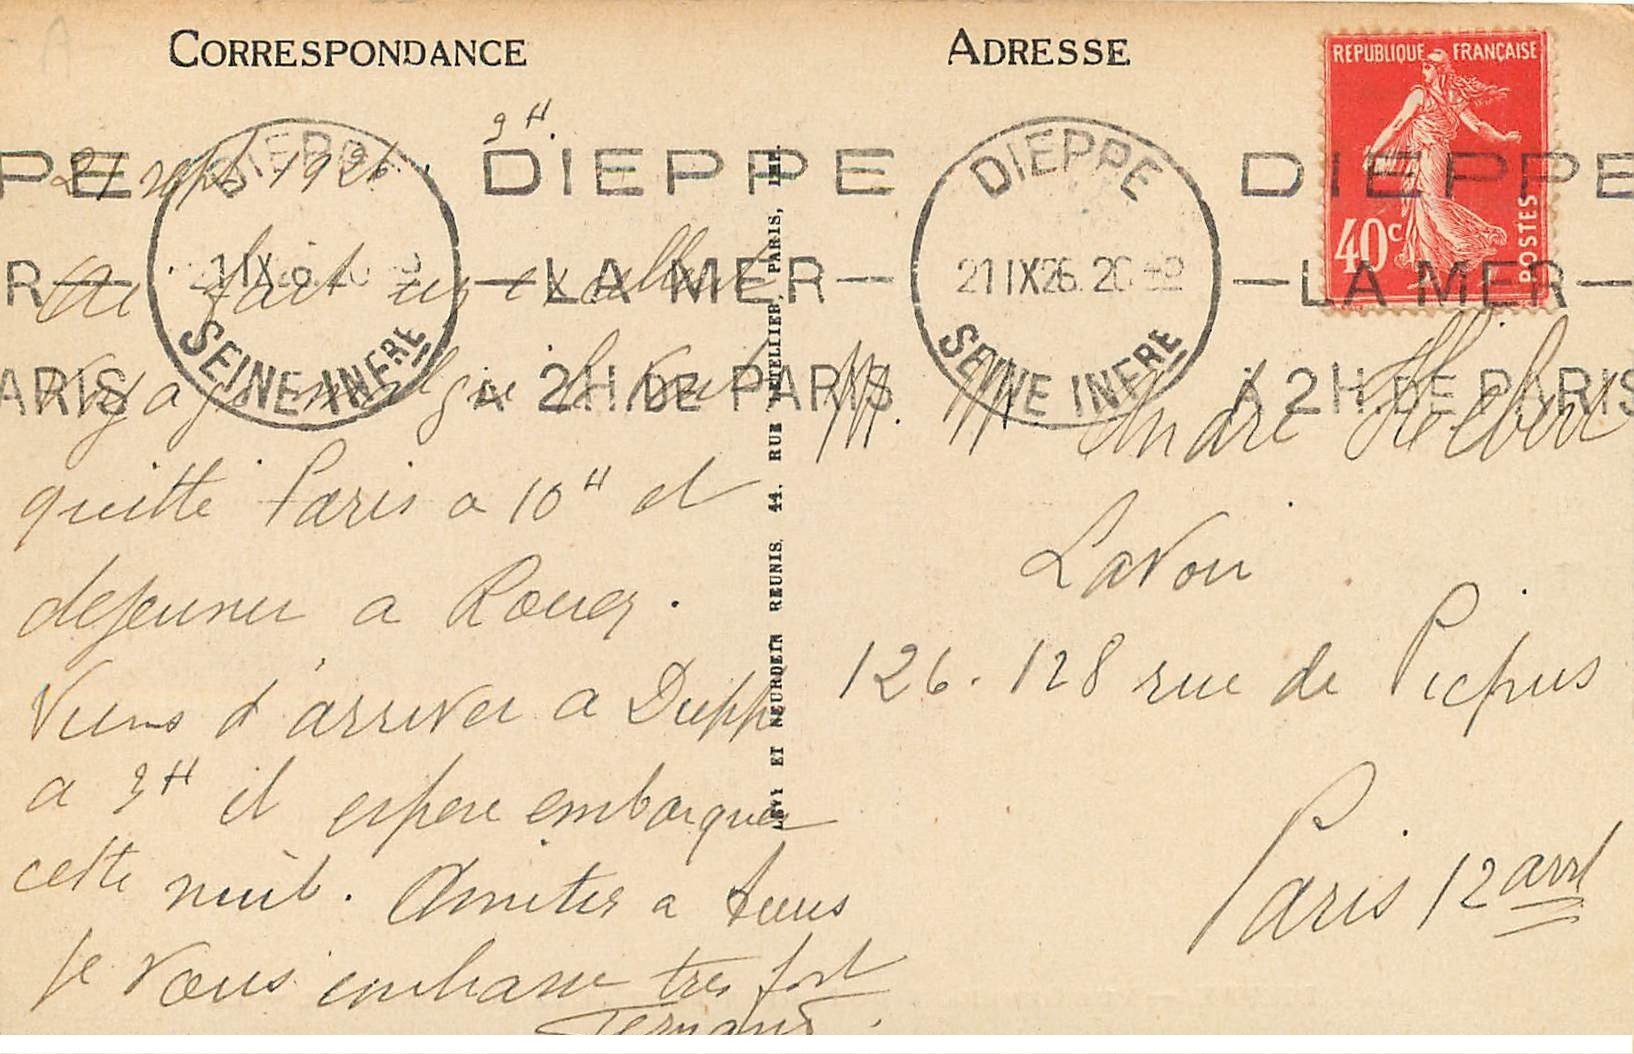 CORRESPONDANCE
ADRESSE
REPUBLIQUE FRANÇAISE
40c
POSTES
9H.
21 sept 1926.
PE DIEPPE DIEPPE
R — — LA MER — — LA MER —
ARIS À 2H. DE PARIS À 2H. DE PARIS
DIEPPE
1 IX
SEINE INFRE
DIEPPE
21 IX 26. 20
SEINE INFRE
fait un excellent
voyage malgré
quitté Paris a 10H et
dejeuner a Rouen.
Viens d'arriver a Dieppe
a 9H il espere embarquer
cette nuit. Amities a tous
Je vous embrasse tres fort
Fernand.
LEVY ET NEURDEIN REUNIS, 44, RUE LETELLIER, PARIS, IMP.
M. M André Hébert
Lavoir
126-128 rue de Picpus
Paris 12 arrd